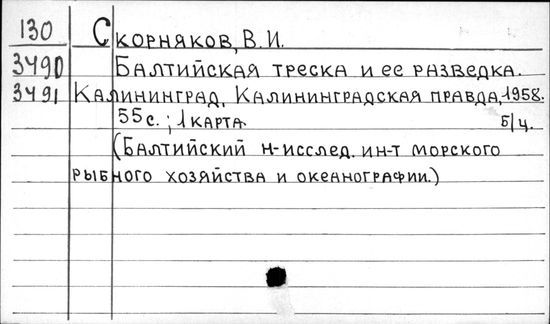 130 Скорняков, В.И.
3490 Балтийская треска и ее разведка.
3491 Калининград, Калининградская правда, 1958.
55с.; 1 карта. б/ц.
(Балтийский н-исслед. ин-т морского
рыбного хозяйства и океанографии.)